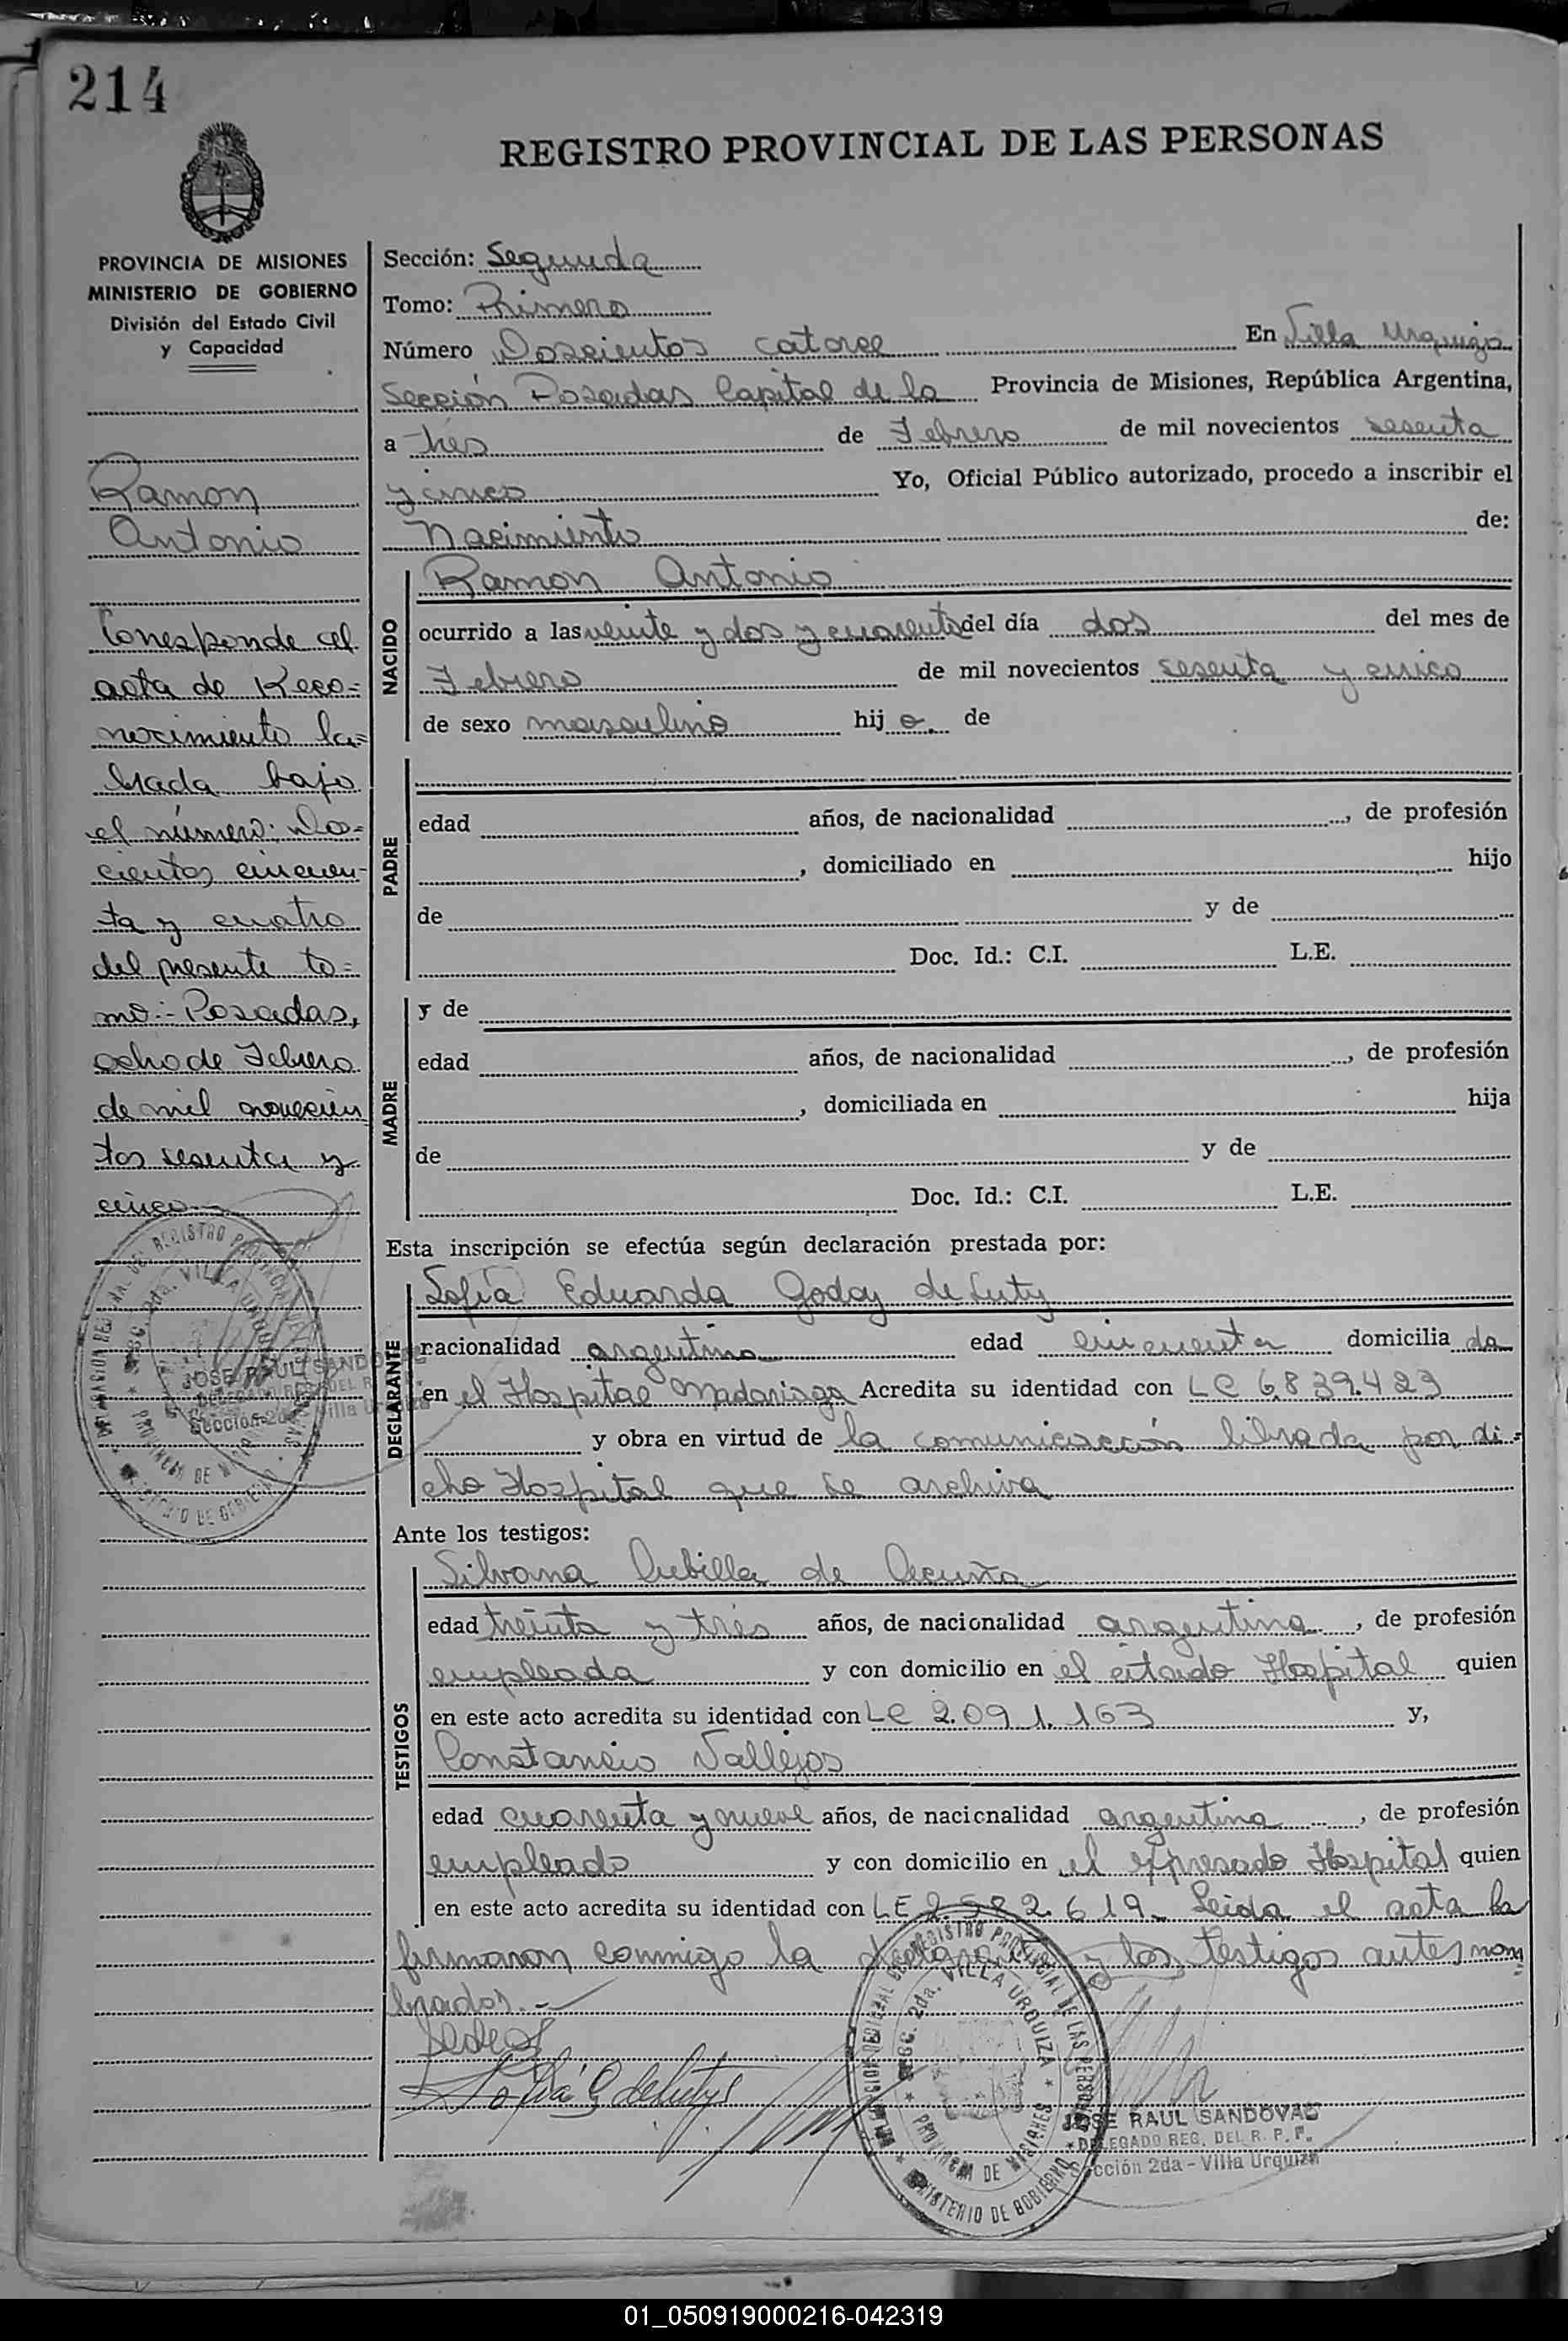 214
REGISTRO PROVINCIAL DE LAS PERSONAS
PROVINCIA DE MISIONES
MINISTERIO DE GOBIERNO
División del Estado Civil
y Capacidad
Ramon
Antonio
Corresponde al
acta de Reco=
nocimiento la=
brada bajo
el número: Do=
cientos cincuen-
ta y cuatro
del presente to=
mo:- Posadas,
ocho de Febrero
de mil novecien
tos sesenta y
cinco
Sección: Segunda
Tomo: Primero
Número Doscientos catorce En Villa Urquiza
Sección Posadas Capital de la Provincia de Misiones, República Argentina,
a tres de Febrero de mil novecientos sesenta
y cinco Yo, Oficial Público autorizado, procedo a inscribir el
Nacimiento de:
NACIDO
Ramon Antonio
ocurrido a las veinte y dos y cuarenta del día dos del mes de
Febrero de mil novecientos sesenta y cinco
de sexo masculino hijo. de
PADRE
edad años, de nacionalidad , de profesión
, domiciliado en hijo
de y de
Doc. Id.: C.I. L.E.
MADRE
y de
edad años, de nacionalidad , de profesión
, domiciliada en hija
de y de
Doc. Id.: C.I. L.E.
Esta inscripción se efectúa según declaración prestada por:
DECLARANTE
Sofía Eduarda Godoy de Luty
nacionalidad argentina edad cincuenta domicilia da
en el Hospital Madariaga Acredita su identidad con LC 6.839.423
y obra en virtud de la comunicación librada por di=
cho Hospital que se archiva
Ante los testigos:
TESTIGOS
Silvana Cubilla de Acuña
edad treinta y tres años, de nacionalidad argentina , de profesión
empleada y con domicilio en el citado Hospital quien
en este acto acredita su identidad con LC 2.091.163 y,
Constancio Vallejos
edad cuarenta y nueve años, de nacionalidad argentina , de profesión
empleado y con domicilio en el expresado Hospital quien
en este acto acredita su identidad con LE 2.582.619. Leida el acta la
firmaron conmigo la declarante y los testigos antes nom=
brados.-
Sofía G de Luty
JOSE RAUL SANDOVAL
DELEGADO REG. DEL R. P. P.
Sección 2da - Villa Urquiza
JOSE RAUL SANDOVAL
DELEGADO REG. DEL R.
Sección 2da - Villa Urquiza
DELEGACION REGIONAL DEL REGISTRO PROVINCIAL DE LAS PERSONAS
SECC. 2da. VILLA URQUIZA
PROVINCIA DE MISIONES
MINISTERIO DE GOBIERNO
01_050919000216-042319